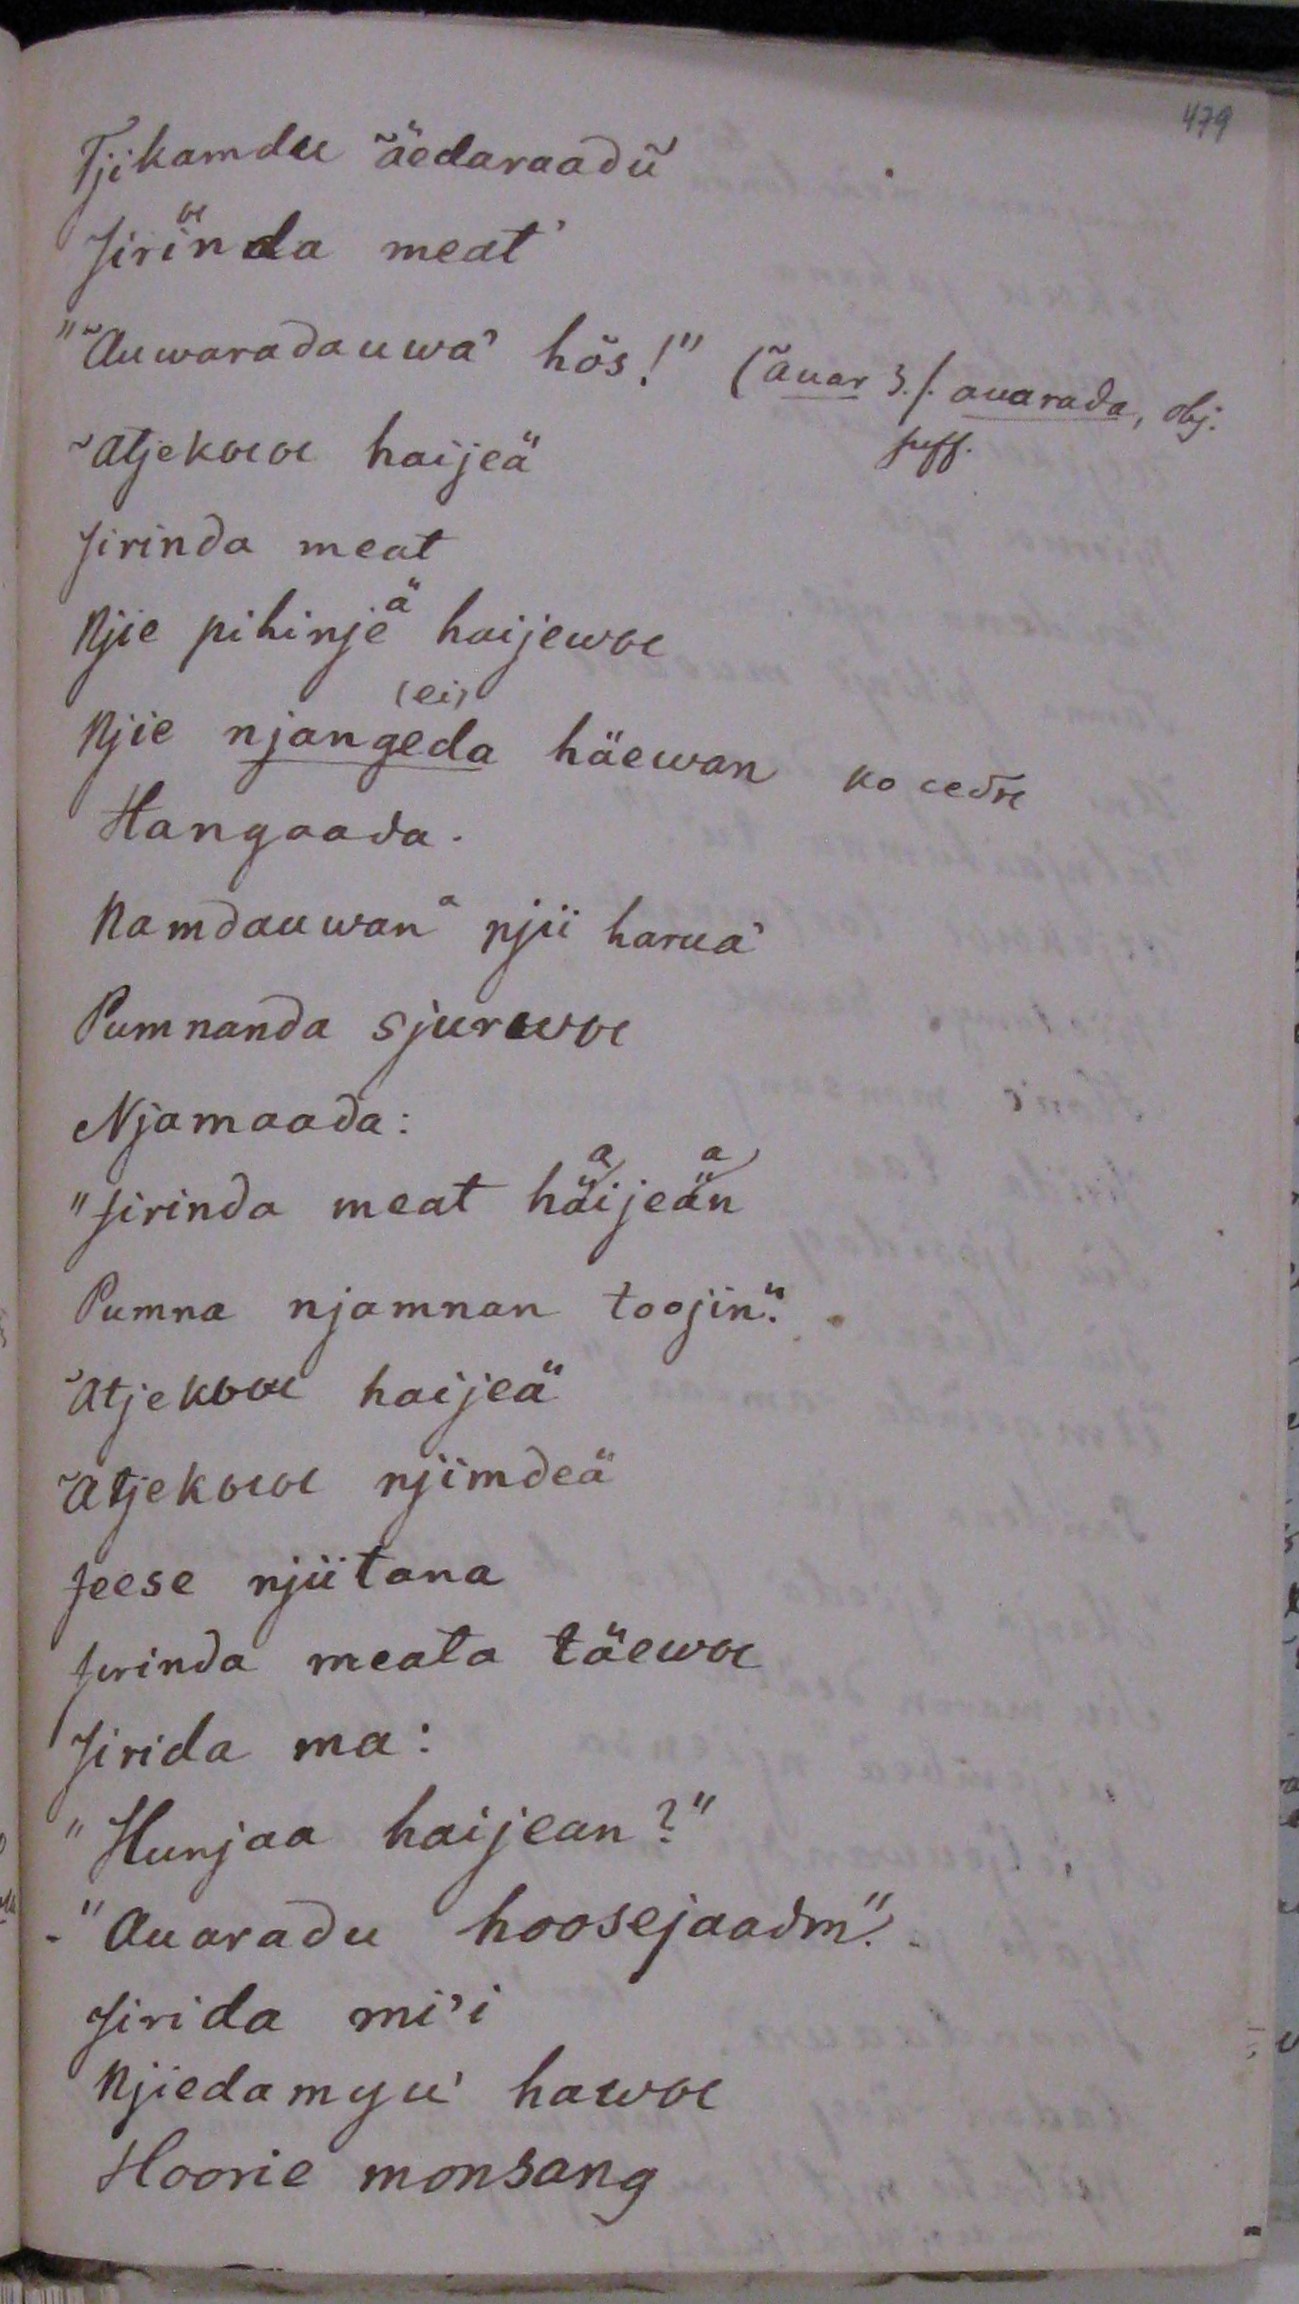 479
Tjikamdu ˜äedaraadu˜
Jirinda meat'
"˜Auwaradauwa' hös!" (˜auar 3./. auarada, obj.
suff.
˜Atjekowoe haijeä
Jirinda meat
Njie pihinjeä haijewoe
(ei)
Njie njangeda häewan
Hangaada.
Namdauwan njii harua'
Pumnanda sjurewoe
Njamaada:
"Jirinda meat häijeän
a a
Pumna njamnan toojin".
˜Atjekowoe haijeä
˜Atjekowoe njimdeä
Jeese njiitana
Jirinda meata täewoe
Jirida ma:
"Hunjaa haijean?"
-"Auaradu hoosejaadm".-
Jirida mi'i
Njiedamyu' hawoe
Hoorie monsang